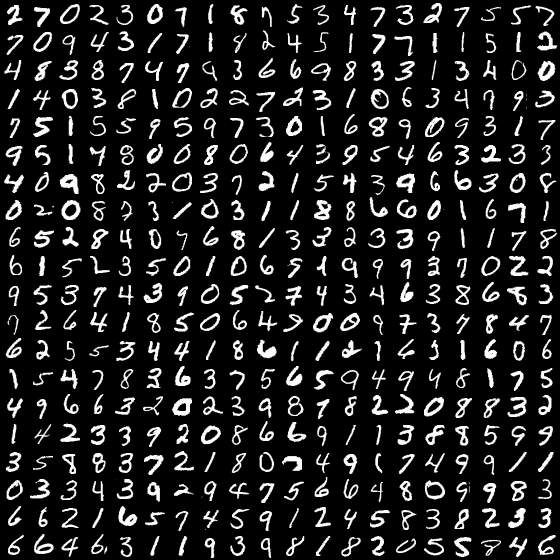 2 7 0 2 3 0 7 1 8 7 5 3 4 7 3 2 7 5 5 7
7 0 9 4 3 1 7 1 8 2 4 5 1 7 7 1 1 5 1 2
4 8 3 8 7 4 7 9 3 6 6 9 8 3 3 1 3 4 0 0
1 4 0 3 8 1 0 2 2 7 2 3 1 0 6 3 4 7 9 3
7 5 1 5 5 9 5 9 7 3 0 1 6 8 9 0 9 3 1 7
9 5 1 7 8 0 0 8 0 6 4 3 9 5 4 6 3 2 3 3
4 0 9 8 2 2 0 3 7 2 1 5 4 3 9 6 6 3 0 8
0 2 0 8 7 3 1 0 3 1 1 8 8 6 6 0 1 6 7 1
6 5 2 8 4 0 7 6 8 1 3 3 2 3 3 9 1 1 7 8
6 1 5 2 3 5 0 1 0 6 5 1 9 9 9 3 7 0 2 2
9 5 3 7 4 3 9 0 5 2 7 4 3 4 6 3 8 6 8 3
7 2 6 4 1 8 5 0 6 4 9 0 0 9 7 3 7 8 4 7
6 2 5 5 3 4 4 1 8 6 1 1 2 1 6 3 1 6 0 6
1 5 4 7 8 3 6 3 7 5 6 5 9 4 9 4 8 1 7 5
4 9 6 6 3 2 0 2 3 9 8 7 8 2 2 0 8 8 3 2
1 4 2 3 3 9 2 0 8 6 6 9 1 1 3 8 8 5 9 9
3 5 8 8 3 7 2 1 8 0 7 4 9 1 7 4 9 9 1 1
0 3 3 4 3 9 2 9 4 7 5 6 6 4 8 0 9 9 8 3
6 6 2 1 6 5 7 4 5 9 1 2 4 5 8 3 8 2 3 3
6 6 4 6 3 1 1 9 3 9 8 1 8 2 0 5 5 8 4 8